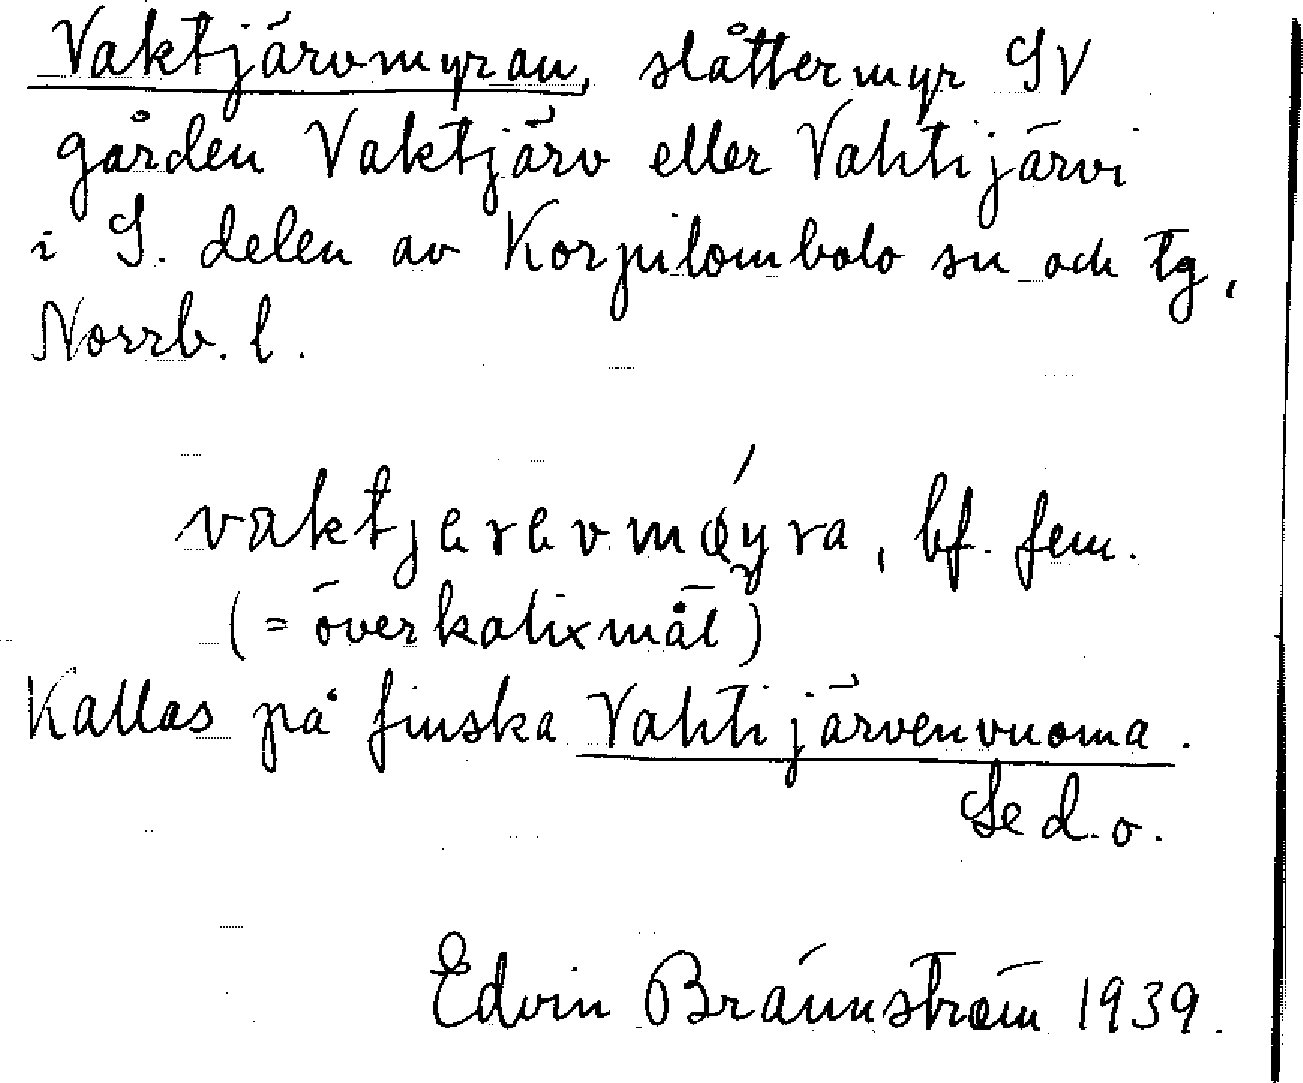 Vaktjärvmyran, slåttermyr SV
gården Vaktjärv eller Vahtijärvi
i S. delen av Korpilombolo sn och tg,
Norrb. l.
vaktjerevmøyra, bf. fem.
(= överkalixmål)
Kallas på finska Vahtijärvenvuoma.
Se d.o.
Edvin Brännström 1939.